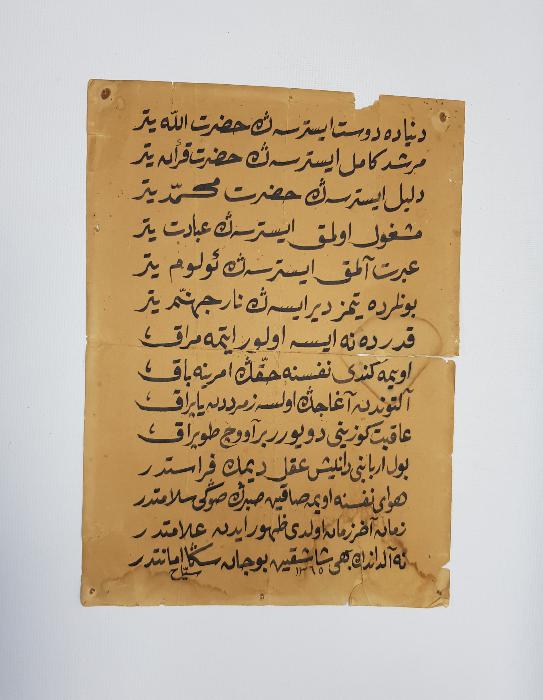 دنياده دوست ايسترسه‌ڭ حضرت الله يتر
مرشد كامل ايسترسه‌ڭ حضرت قرأن يتر
دليل ايسترسه‌ڭ حضرت محمّد يتر
مشغول اولمق ايسترسه‌ڭ عبادت يتر
عبرت آلمق ايسترسه‌ڭ ئولوم يتر
بونلرده يتمز ديرايسه‌ڭ نار جهنّم يتر
قدرده نه ايسه اولور ايتمه مراق
اويمه كندى نفسنه حقّڭ امرينه باق
آلتوندن آغاجڭ اولسه زمرددن ياپراق
عاقبت كوزيڭى دويورر بر آووچ طوپراق
بول اربابنى دانيش عقل ديمك فراستدر
هواى نفسنه اويمه صاقين صبرڭ صوڭى سلامتدر
زمان آخر زمان اولدى ظهور ايدن علامتدر
نه آلداندڭ بهى شاشقين بو جان سڭا امانتدر
١٣٦٥